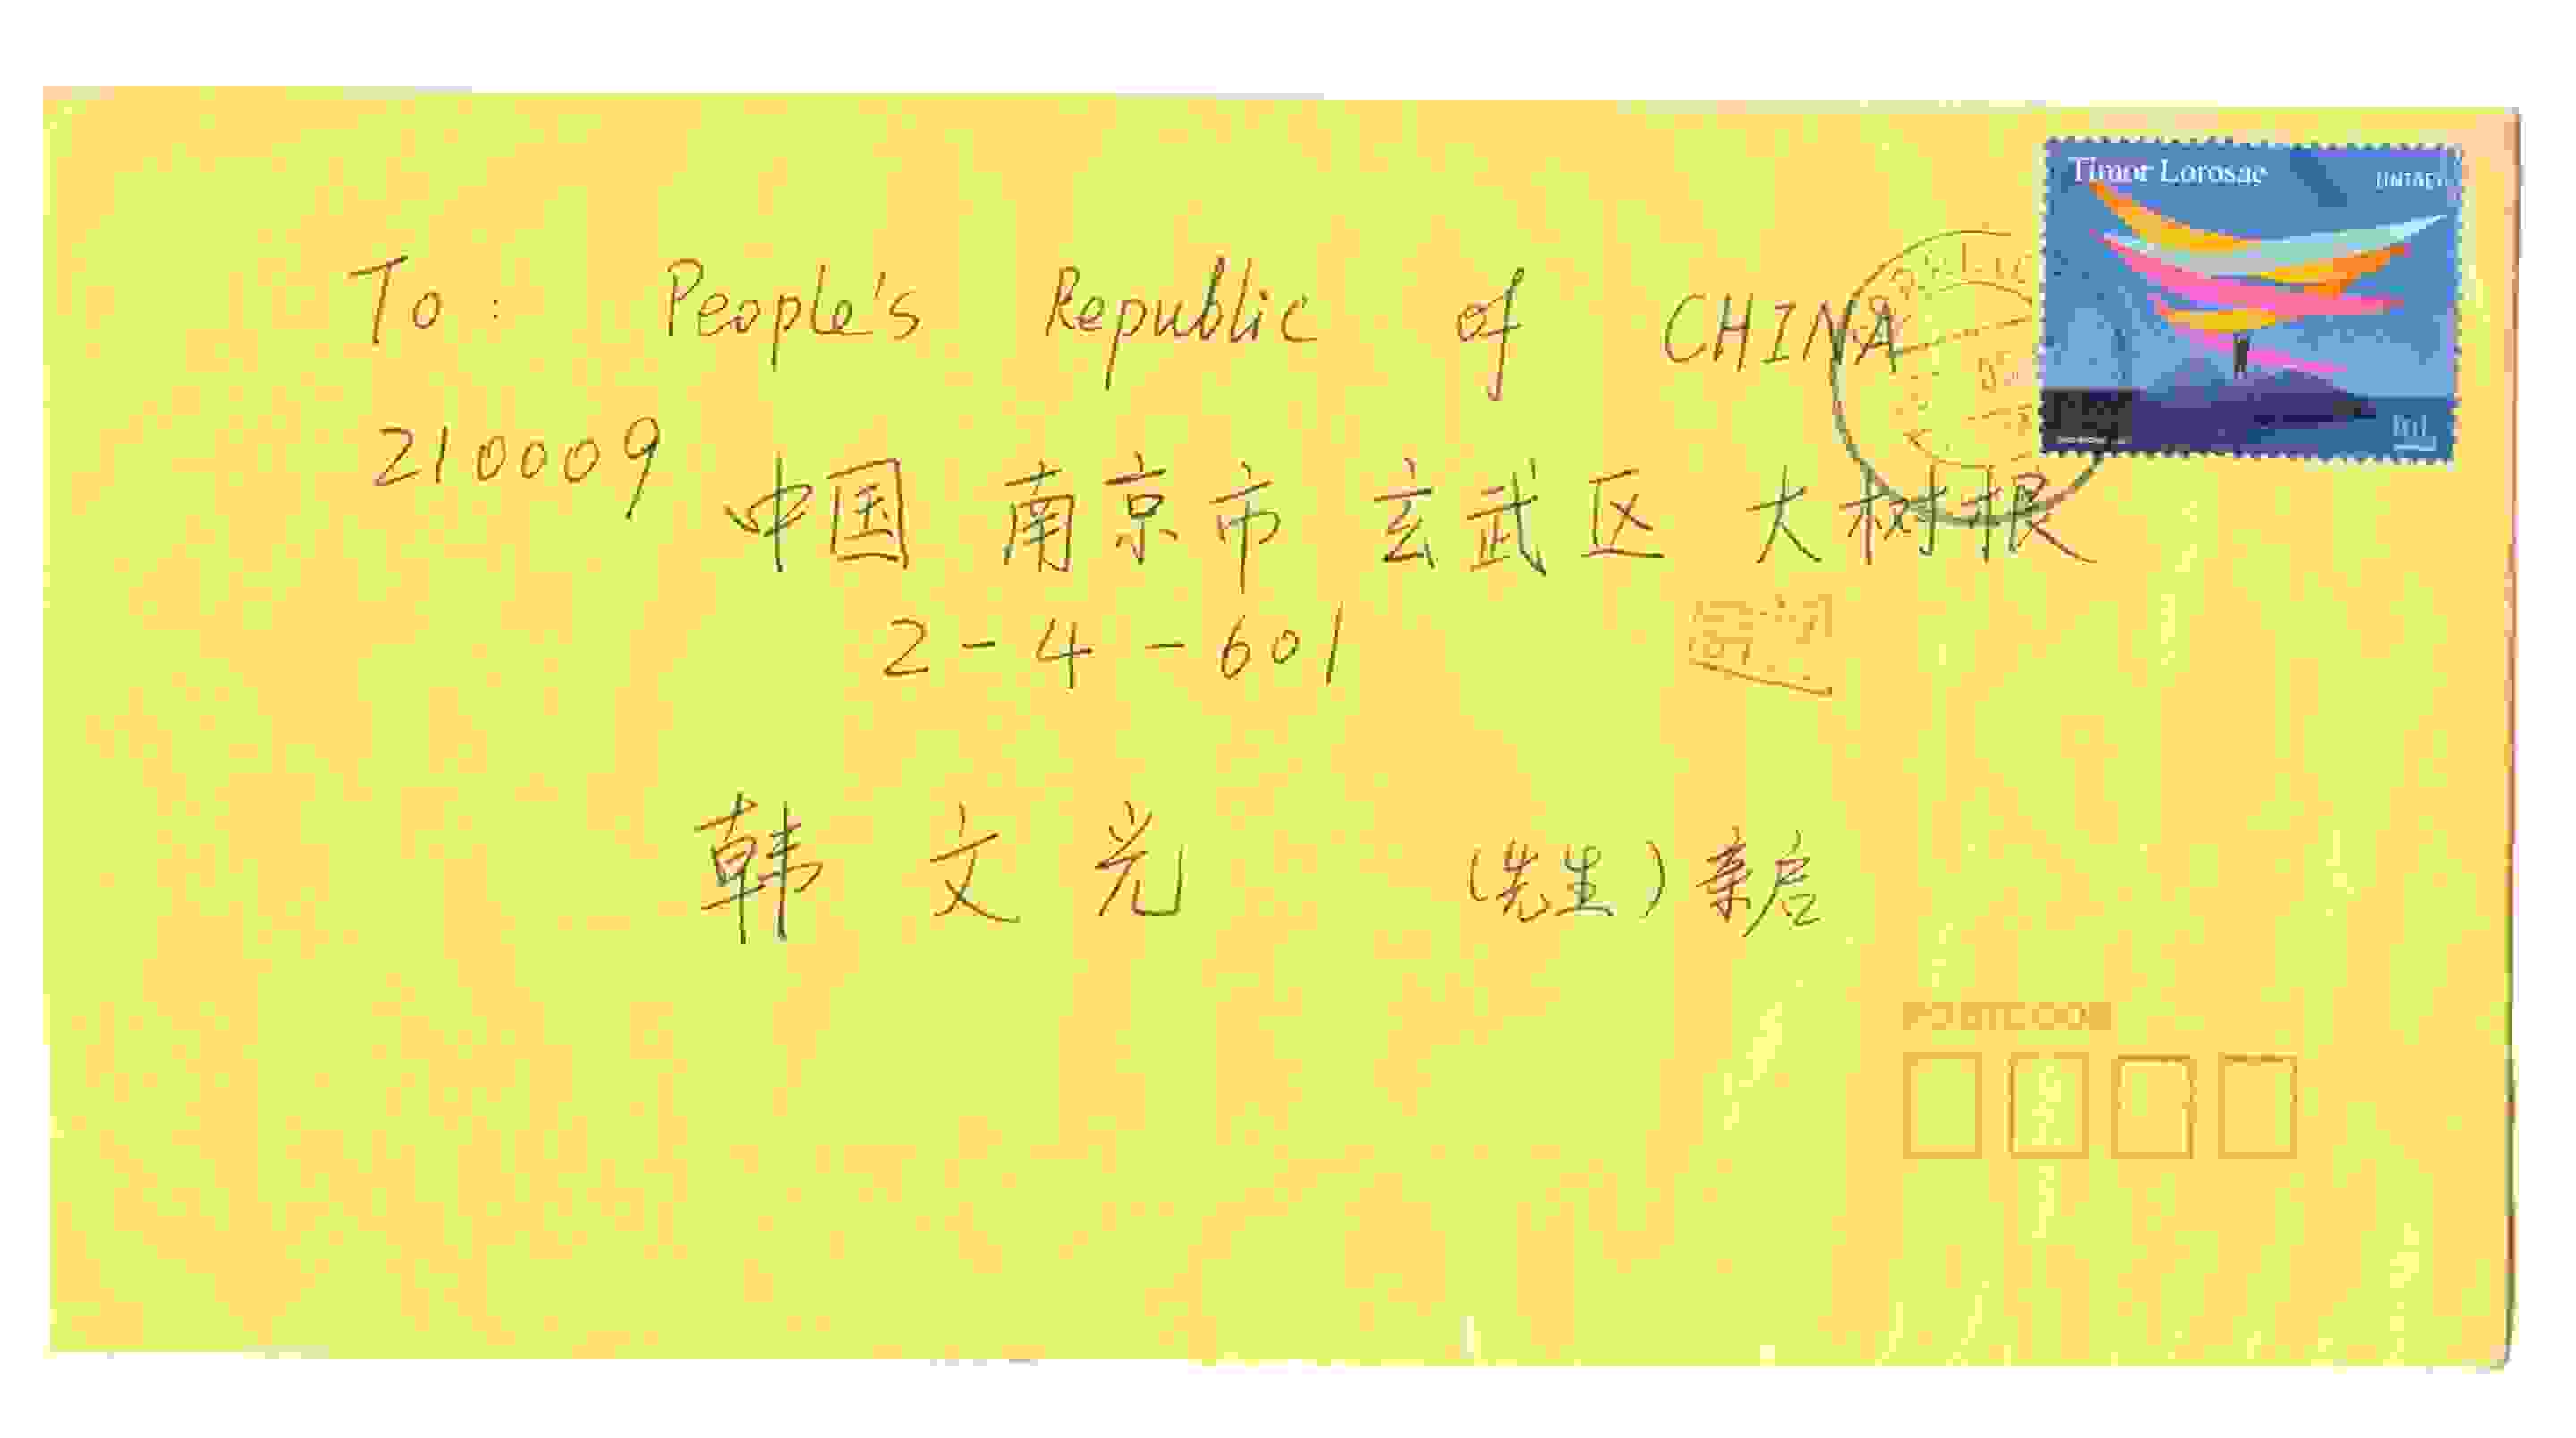 Timor Lorosae
UNTAET
To: People's Republic of CHINA
210009
中国 南京市 玄武区 大树根
2-4-601
韩文光 (先生) 亲启
POSTCODE